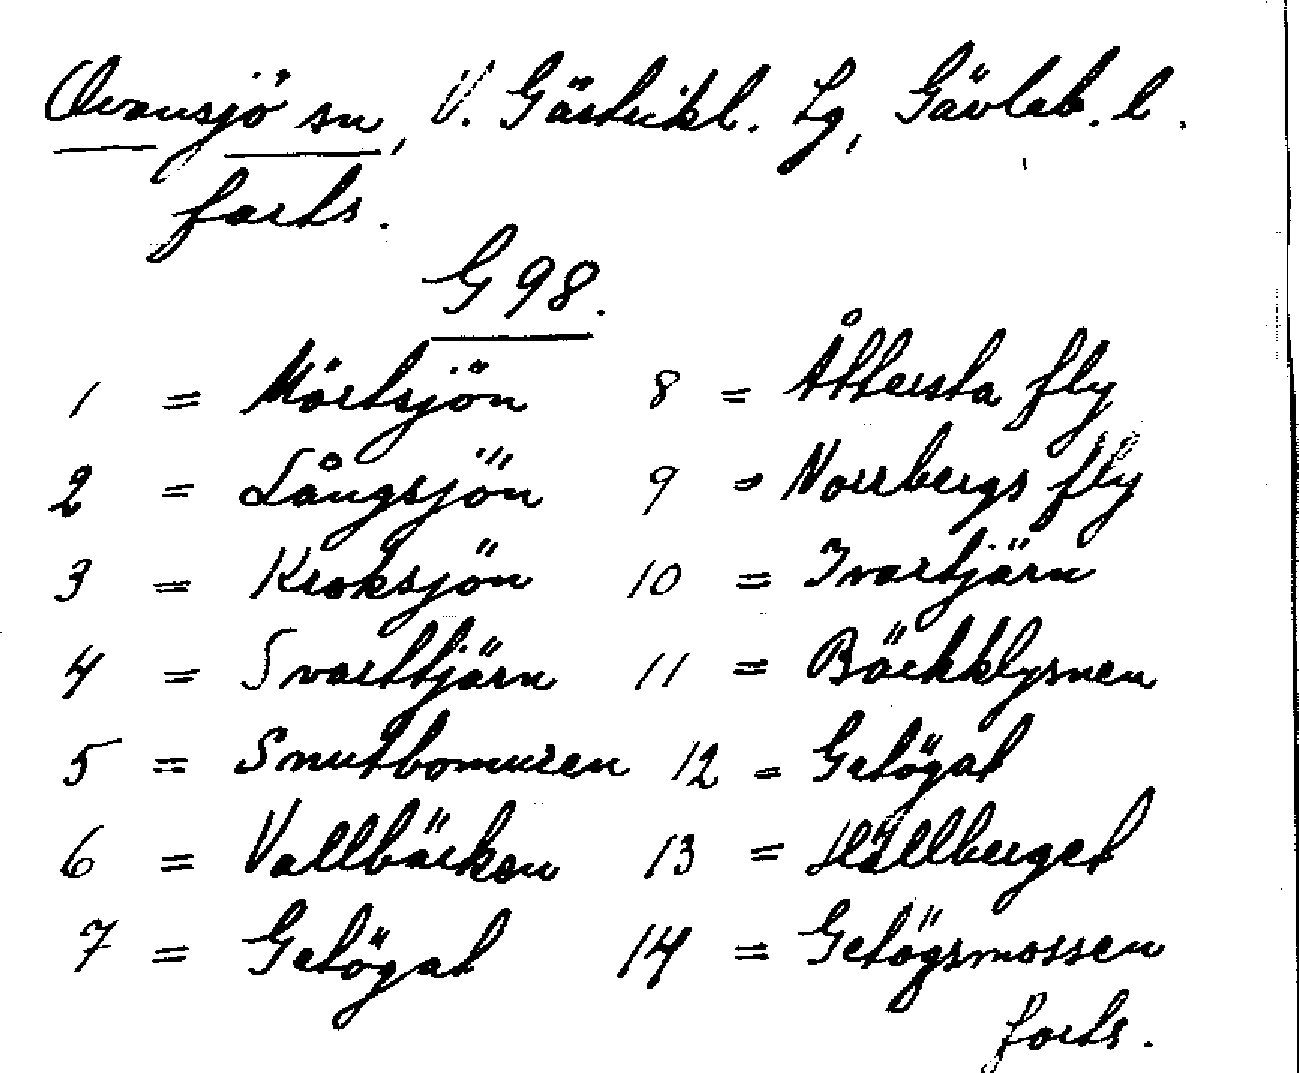 Ovansjö sn, V. Gästrikl. Lg, Gävleb. l.
forts.
G 98.
1 = Mörtsjön 8 = Åttersta fly
2 = Långsjön 9 = Norrbergs fly
3 = Kroksjön 10 = Ivartjärn
4 = Svarttjärn 11 = Bäckklysnen
5 = Snutbomuren 12 = Getögat
6 = Vallbäcken 13 = Hällberget
7 = Getögat 14 = Getögsmossen
forts.